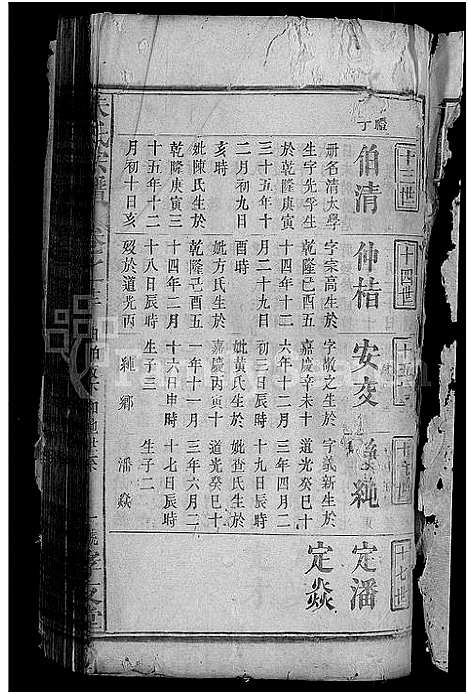 十三世
禮
丁
伯清
册名清太學
生字先孚生
於乾隆庚寅
三十五年十
二月初九日
亥時
妣陳氏生於
乾隆庚寅三
十五年十二
月初十日亥
十四世
仲楷
字宗高生於
乾隆己酉五
十四年十二
月二十九日
酉時
妣方氏生於
乾隆己酉五
十四年二月
十八日辰時
歿於道光丙
安交
字敬之生於
嘉慶辛未十
六年十二月
初三日辰時
妣黃氏生於
嘉慶丙寅十
一年十一月
十六日申時
生子三
純 鄉
純
字義新生於
道光癸巳十
三年四月二
十九日辰時
妣查氏生於
道光癸巳十
三年六月二
十七日辰時
生子二
潘 焱
十七世
定潘
定焱
氏宗譜